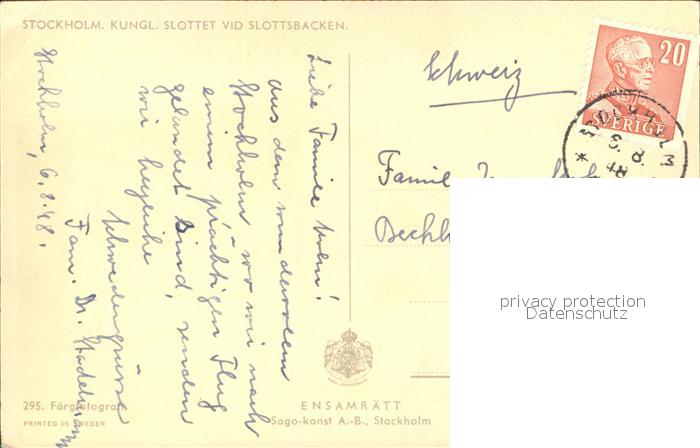 STOCKHOLM. KUNGL. SLOTTET VID SLOTTSBACKEN.
Stockholm, 6.8.48.
Liebe Familie
aus dem wundervollen
Stockholm wo wir nach
einem prächtigen Flug
gelandet sind, senden
wir herzliche
Schwedengrüsse
Fam. Dr.
Schweiz
Familie
20
SVERIGE
STOCKHOLM
6. 8.
48
privacy protection
Datenschutz
295. Färgfotografi
PRINTED IN SWEDEN
ENSAMRÄTT
Sago-konst A.-B., Stockholm